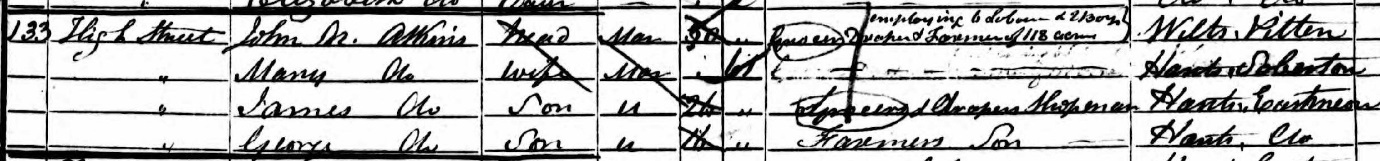 133 High Street John M. Atkins Head Mar 50 " Grocer Draper & Farmer of 118 acres employing 6 Labour & 2 Boys Wilts. Pitten
" Mary Do Wife Mar 61 Hants. Soberton
" James Do Son U 26 " Grocers & Drapers Shopman Hants. Eastmeon
" George Do Son U 16 " Farmers Son Hants. Do